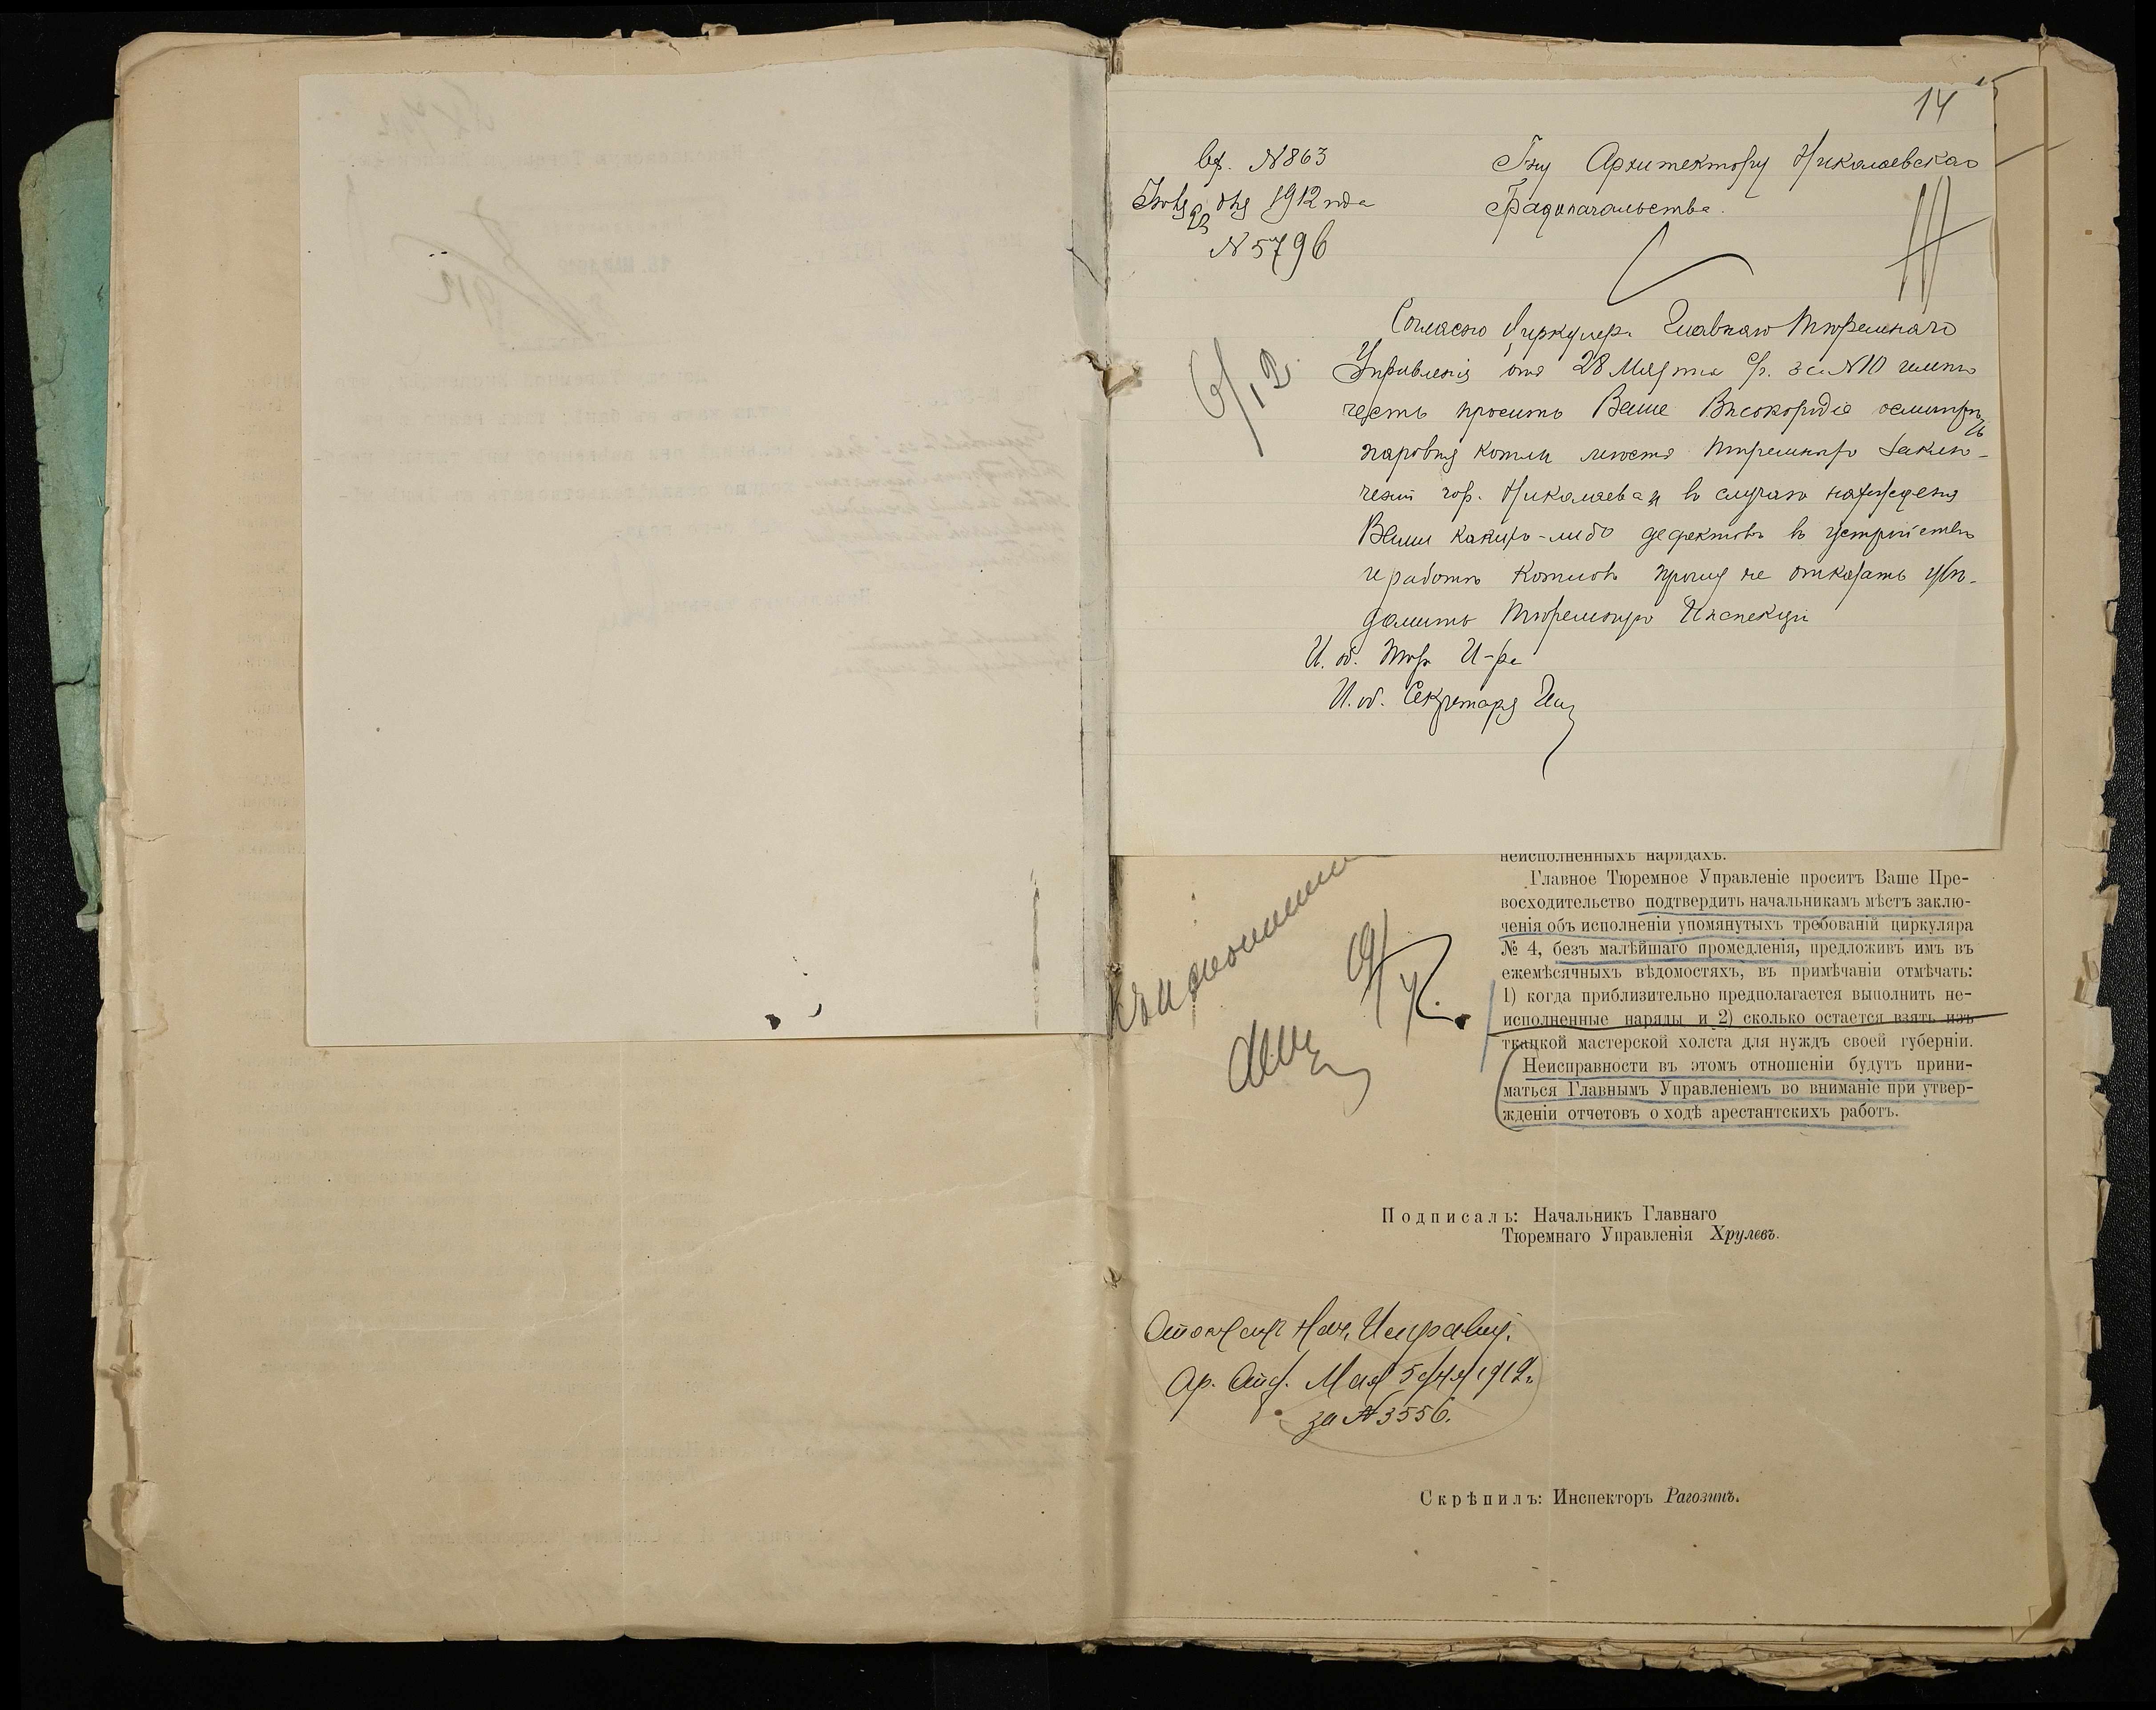 14
вх. N 863
Іюня 22 дня 1912 года
N 5796
Гну Архитектору Николаевскаго
Градоначальства.
Согласно Циркуляра Главнаго Тюремнаго
Управленія отъ 28 Марта с/г. за N10 имѣю
честь просить Ваше Высокородіе осмотрѣть
паровыя котлы мѣстъ тюремнаго заклю-
ченія гор. Николаева и въ случаѣ нахожденія
Вами какихъ-либо дефектовъ въ устройствѣ
и работѣ котловъ прошу не отказать увѣ-
домить Тюремную Инспекцію
И. об. Тюр. И-ра
И. об. Секретаря
неисполненныхъ нарядахъ.
Главное Тюремное Управленіе проситъ Ваше Пре-
восходительство подтвердить начальникамъ мѣстъ заклю-
ченія объ исполненіи упомянутыхъ требованій циркуляра
№ 4, безъ малѣйшаго промедленія, предложивъ имъ въ
ежемѣсячныхъ вѣдомостяхъ, въ примѣчаніи отмѣчать:
1) когда приблизительно предполагается выполнить не-
исполненные наряды и 2) сколько остается взять изъ
ткацкой мастерской холста для нуждъ своей губерніи.
Неисправности въ этомъ отношеніи будутъ прини-
маться Главнымъ Управленіемъ во вниманіе при утвер-
жденіи отчетовъ о ходѣ арестантскихъ работъ.
Къ исполнению
Подписалъ: Начальникъ Главнаго
Тюремнаго Управленія Хрулевъ.
Нач. Исправит.
Ар. Отд. Мая 5 дня 1912 г.
за № 3556.
Скрѣпилъ: Инспекторъ Рагозинъ.